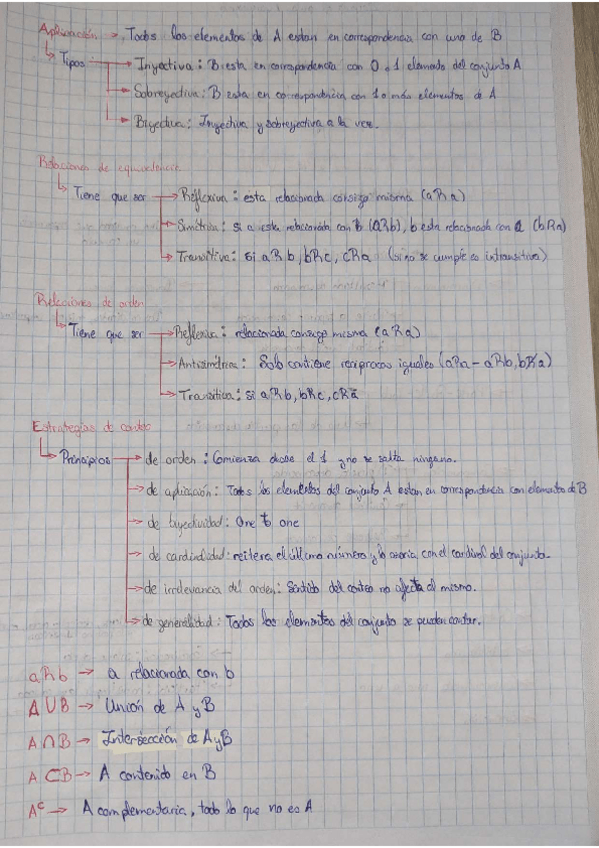 Aplicación → Todos los elementos de A estan en correspondencia con uno de B
↳ Tipos → Inyectiva: B esta en correspondencia con 0 o 1 elemento del conjunto A
→ Sobreyectiva: B esta en correspondencia con 1 o más elementos de A
→ Biyectiva: Inyectiva y sobreyectiva a la vez.
Relaciones de equivalencia
↳ Tiene que ser → Reflexiva: esta relacionada consigo misma (aRa)
→ Simétrica: si a esta relacionada con B (aRb), b esta relacionada con a (bRa)
→ Transitiva: si aRb, bRc, cRa (si no se cumple es intransitiva)
Relaciones de orden
↳ Tiene que ser → Reflexiva: relacionada consigo misma (aRa)
→ Antisimétrica: Solo contiene reciprocas iguales (aRa - aRb, bRa)
→ Transitiva: si aRb, bRc, cRa
Estrategias de conteo
↳ Principios → de orden: Comienza desde el 1 y no se salta ninguno.
→ de aplicación: Todos los elementos del conjunto A estan en correspondencia con elementos de B
→ de biyectividad: One to one
→ de cardinalidad: reitera el último número y lo asocia con el cardinal del conjunto.
→ de irrelevancia del orden: Sentido del conteo no afecta al mismo.
→ de generalidad: Todos los elementos del conjunto se pueden contar.
aRb → a relacionada con b
A∪B → Unión de A y B
A∩B → Intersección de A y B
A⊂B → A contenido en B
Aᶜ → A complementaria, todo lo que no es A